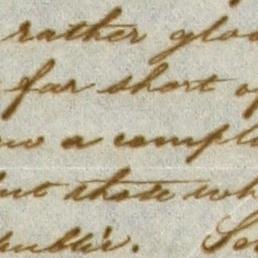 rather gloo
far short of
w a compl
but those wh
public. Se